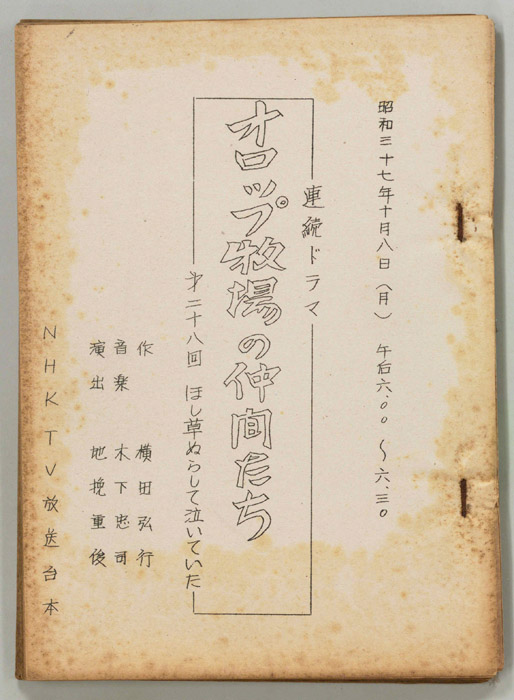 昭和三十七年十月八日(月) 午后六.〇〇~六.三〇
連続ドラマ
オロップ牧場の仲間たち
㐧二十八回 ほし草ぬらして泣いていた
作 横田弘行
音楽 木下忠司
演出 地挽重俊
NHKTV放送台本